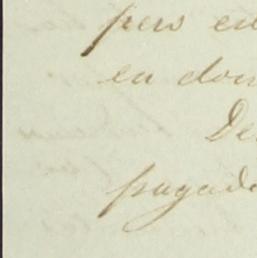 pero en
en don
De
pagad